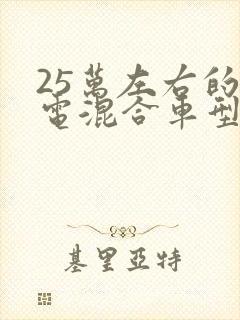 25萬左右的
電混合車型
基里亞特